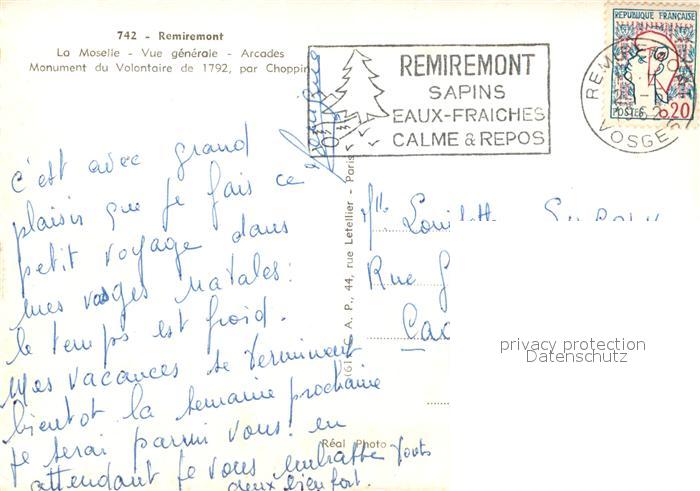 742 - Remiremont
La Moselle - Vue générale - Arcades
Monument du Volontaire de 1792, par Choppin
REMIREMONT
SAPINS
EAUX-FRAICHES
CALME & REPOS
REPUBLIQUE FRANÇAISE
POSTES 0,20
VOSGES
c'est avec grand
plaisir que je fais ce
petit voyage dans
mes vosges natales:
le temps est froid.
Mes vacances se terminent
bientot la semaine prochaine
je serai parmi vous. en
attendant je vous embrasse touts
deux bien fort.
C. A. P., 44, rue Letellier - Paris
Réal Photo
Mlle
Rue
privacy protection
Datenschutz